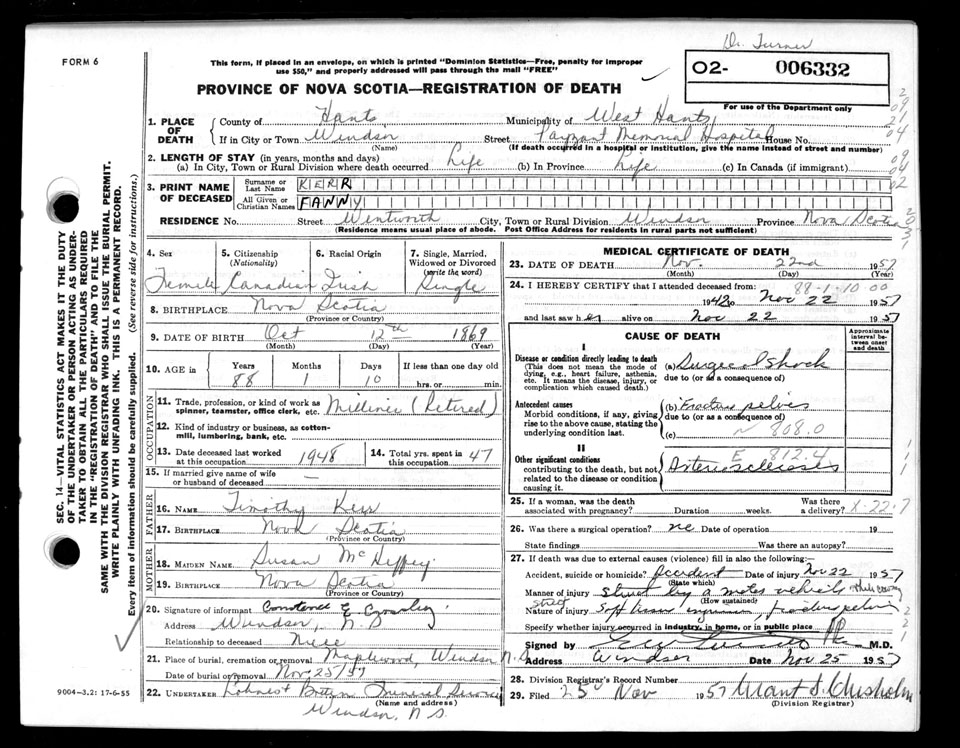 Dr. Turner
FORM 6
This form, if placed in an envelope, on which is printed "Dominion Statistics—Free, penalty for improper
use $50," and properly addressed will pass through the mail "FREE"
O2- 006332
For use of the Department only
PROVINCE OF NOVA SCOTIA—REGISTRATION OF DEATH
1. PLACE OF DEATH
County of Hants Municipality of West Hants
If in City or Town Windsor Street Payzant Memorial Hospital House No.
(Name) (If death occurred in a hospital or institution, give the name instead of street and number)
2. LENGTH OF STAY (in years, months and days)
(a) In City, Town or Rural Division where death occurred Life (b) In Province Life (c) In Canada (if immigrant)
3. PRINT NAME OF DECEASED
Surname or Last Name KERR
All Given or Christian Names FANNY
RESIDENCE No. Street Wentworth City, Town or Rural Division Windsor Province Nova Scotia
(Residence means usual place of abode. Post Office Address for residents in rural parts not sufficient)
4. Sex 5. Citizenship (Nationality) 6. Racial Origin 7. Single, Married, Widowed or Divorced (write the word)
Female Canadian Irish Single
8. BIRTHPLACE Nova Scotia
(Province or Country)
9. DATE OF BIRTH Oct 12th 1869
(Month) (Day) (Year)
10. AGE in Years Months Days If less than one day old
88 1 10 hrs. or min.
OCCUPATION
11. Trade, profession, or kind of work as
spinner, teamster, office clerk, etc. Milliner (Retired)
12. Kind of industry or business, as cotton-
mill, lumbering, bank, etc.
13. Date deceased last worked at this occupation 1948 14. Total yrs. spent in this occupation 47
15. If married give name of wife
or husband of deceased —
FATHER
16. NAME Timothy Kerr
17. BIRTHPLACE Nova Scotia
(Province or Country)
MOTHER
18. MAIDEN NAME Susan McHeffey
19. BIRTHPLACE Nova Scotia
(Province or Country)
20. Signature of informant Constance E.
Address Windsor, N.S
Relationship to deceased Niece
21. Place of burial, cremation or removal Maplewood, Windsor N.S.
Date of burial or removal Nov 25/57
22. UNDERTAKER Funeral Service
(Name and address)
Windsor, N.S.
MEDICAL CERTIFICATE OF DEATH
23. DATE OF DEATH Nov. 22nd 1957
(Month) (Day) (Year)
24. I HEREBY CERTIFY that I attended deceased from: 88-1-10 00
1942 to Nov 22 1957
and last saw her alive on Nov 22 1957
CAUSE OF DEATH
Approximate interval between onset and death
I
Disease or condition directly leading to death
(This does not mean the mode of
dying, e.g., heart failure, asthenia,
etc. It means the disease, injury, or
complication which caused death.)
(a) Surgical Shock
due to (or as a consequence of)
Antecedent causes
Morbid conditions, if any, giving
rise to the above cause, stating the
underlying condition last.
(b) Fracture pelvis
due to (or as a consequence of)
(c) N 808.0
II
Other significant conditions
contributing to the death, but not
related to the disease or condition
causing it.
E 812.4
Arteriosclerosis
25. If a woman, was the death associated with pregnancy? Duration weeks. Was there a delivery? X-22.7
26. Was there a surgical operation? no Date of operation 19
State findings Was there an autopsy?
27. If death was due to external causes (violence) fill in also the following:—
Accident, suicide or homicide? Accident Date of injury Nov 22 1957
(State which)
Manner of injury Struck by a motor vehicle while crossing
street (How sustained)
Nature of injury Soft tissue injuries, fracture pelvis
Specify whether injury occurred in industry, in home, or in public place
Signed by M.D.
Address Windsor Date Nov 25 1957
28. Division Registrar's Record Number
29. Filed 25 Nov 1957 Grant S. Chisholm
(Division Registrar)
SEC. 14—VITAL STATISTICS ACT MAKES IT THE DUTY
OF THE UNDERTAKER OR PERSON ACTING AS UNDER-
TAKER TO OBTAIN ALL THE PARTICULARS REQUIRED
IN THE "REGISTRATION OF DEATH" AND TO FILE THE
SAME WITH THE DIVISION REGISTRAR WHO SHALL ISSUE THE BURIAL PERMIT.
WRITE PLAINLY WITH UNFADING INK. THIS IS A PERMANENT RECORD.
Every item of information should be carefully supplied. (See reverse side for instructions.)
9004-3.2: 17-6-55